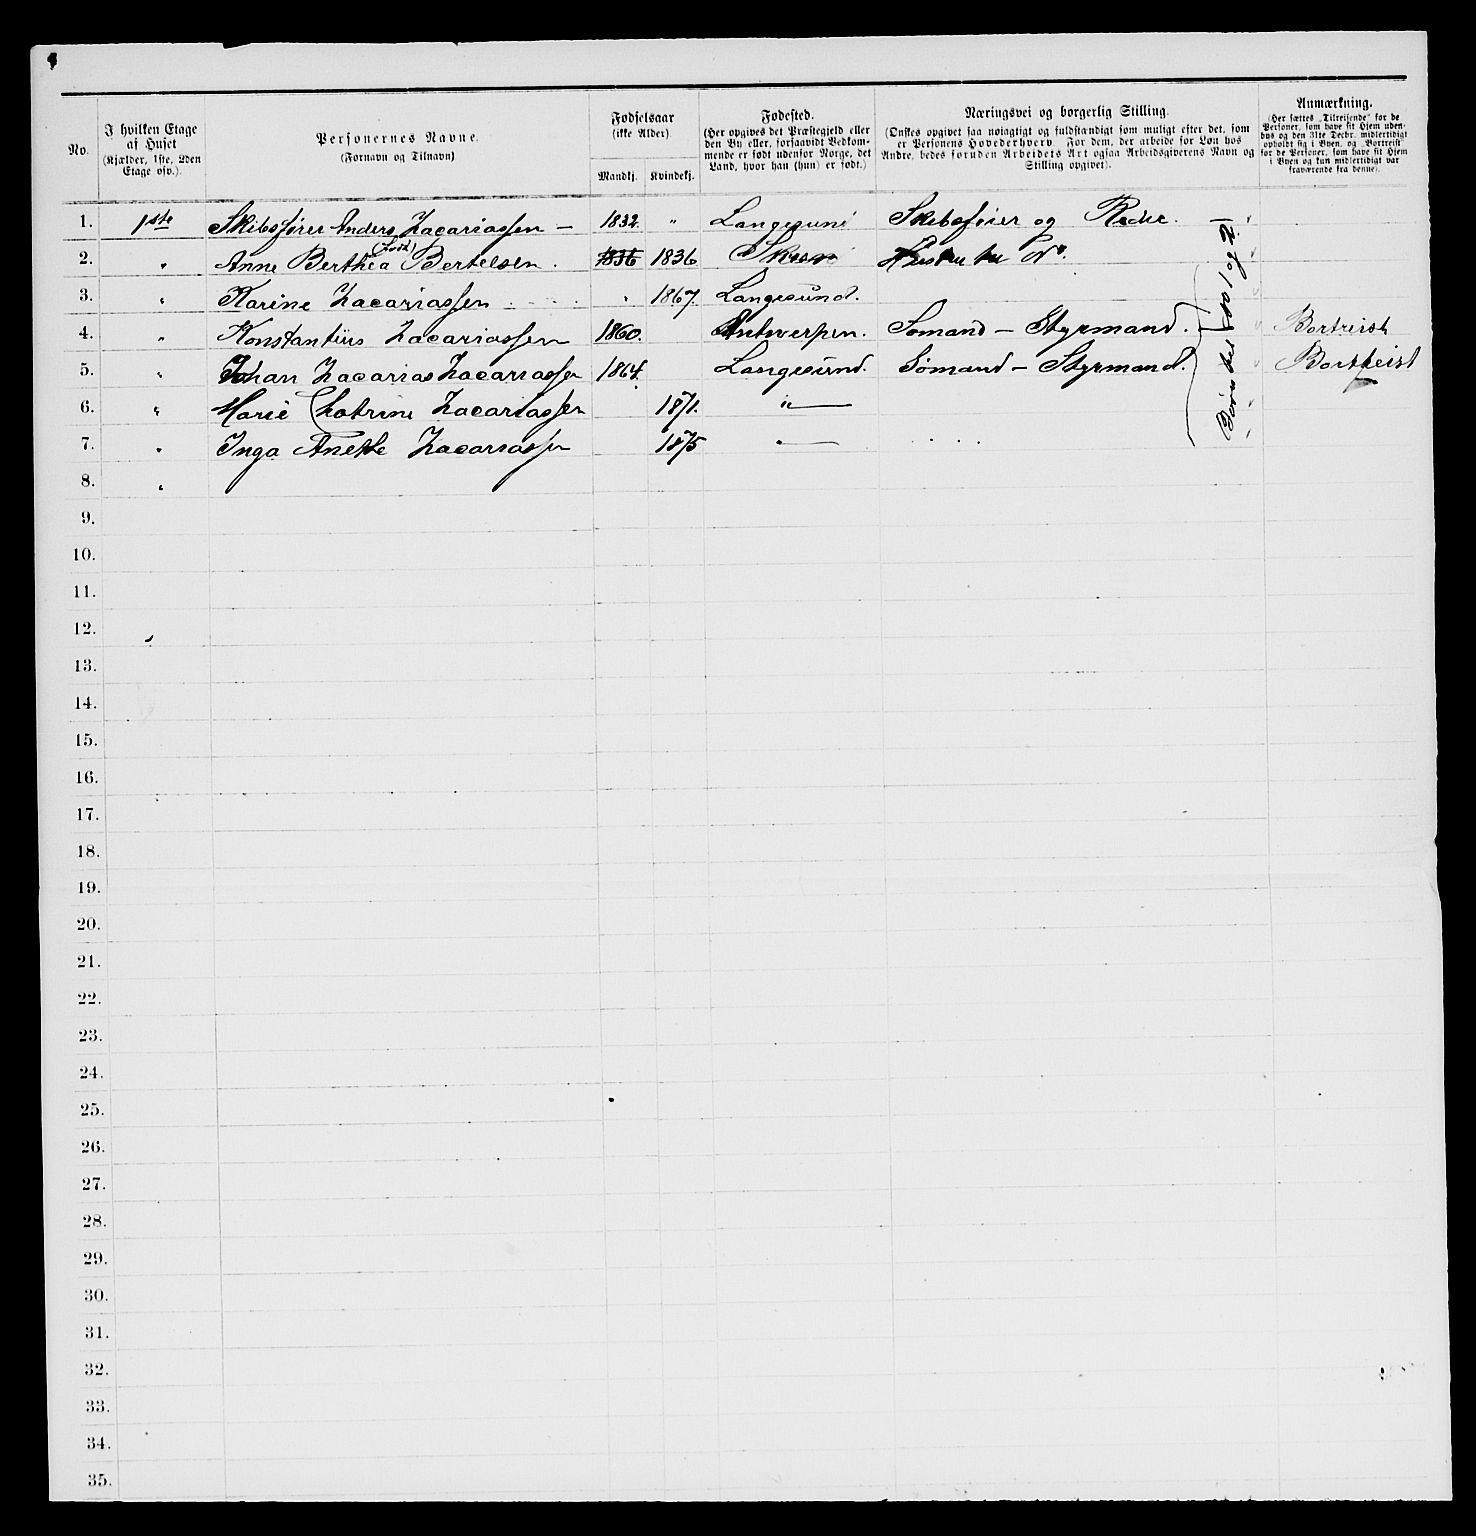 No.
I hvilken Etage af Huset (Kjælder, 1ste, 2den Etage osv.).
Personernes Navne. (Fornavn og Tilnavn)
Fødselsaar (ikke Alder)
Mandkj. Kvindekj.
Fødested. (Her opgives det Præstegjeld eller den By eller, forsaavidt Vedkommende er født udenfor Norge, det Land, hvor han (hun) er født.)
Næringsvei og borgerlig Stilling. (Ønskes opgivet saa nøiagtigt og fuldstændigt som muligt efter det, som er Personens Hovederhverv. For dem, der arbeide for Løn hos Andre, bedes foruden Arbeidets Art ogsaa Arbeidsgiverens Navn og Stilling opgivet).
Anmærkning. (Her sættes „Tilreisende" for de Personer, som have sit Hjem udenbys og den 31te Decbr. midlertidigt opholdt sig i Byen, og „Bortreist" for de Personer, som have sit Hjem i Byen og kun midlertidigt var fraværende fra denne).
1. 1ste Skibsfører Anders Zacariassen — 1832. " Langesund Skibsfører og Reder. —
2. " Anne Berthea (født) Bertelsen. 1836 1836 Do.
3. " Karine Zacariassen " 1867. Langesund.
4. " Konstantius Zacariassen 1860. Antwerpen. Sømand — Styrmand. Bortreist
5. " Johan Zacarias Zacariassen 1864. Langesund. Sømand — Styrmand. Bortreist
6. " Marie Chatrine Zacariassen 1871. "—
7. " Inga Anette Zacariassen 1875 "—
Børn til No 1 og 2.
8. "
9.
10.
11.
12.
13.
14.
15.
16.
17.
18.
19.
20.
21.
22.
23.
24.
25.
26.
27.
28.
29.
30.
31.
32.
33.
34.
35.